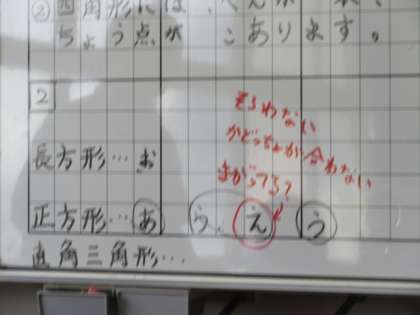 ②四角形には、
ちょう点が こあります。
2
そろわない
かどっちょが合わない
まがってる?
長方形…お
正方形…あ う. え う
直角三角形…